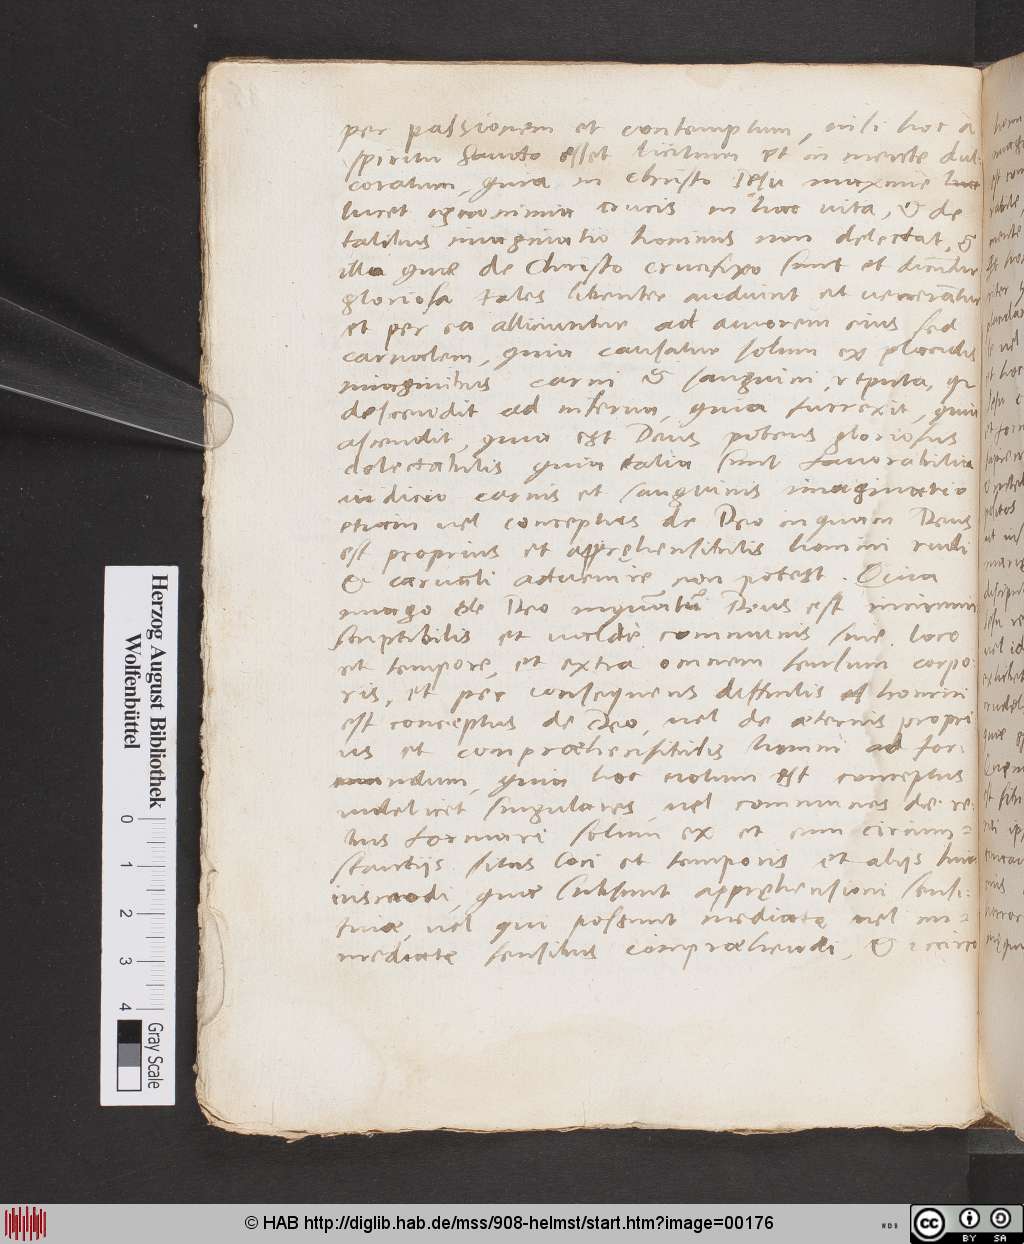 per passionem et contemptum, nisi hoc a
spiritu sancto esset licitum et in mente dul
coratum, quia in Christo Iesu maxime
lucet ignominia crucis in hac vita, & de
talibus imaginatio hominis non delectat, &
illa quæ de Christo crucifixo sunt et dicuntur
gloriosa tales libenter audiunt et venerantur
et per ea alliciuntur ad amorem eius sed
carnalem, quia causatur solum ex placidis
imaginibus carni & sanguini, reputa, qz
descendit ad inferna, quia surrexit, quia
ascendit, quia est Deus potens gloriosus
delectabilis quia talia sunt favorabilia
iudicio carnis et sanguinis imaginatio
etiam vel conceptus de Deo inquam Deus
est proprius et appręhensibilis homini rudi
& carnali advenire non potest. Quia
imago de Deo inquātū Deus est incircum
scriptibilis et valde communis sine loco
et tempore, et extra omnem sensum corpo
ris, et per consequens difficilis homini
est conceptus de Deo, vel de æternis propri
us et compræhensibilis homini ad for:
mandum, quia hoc notum est conceptus
videlicet singulares, vel communes de re:
bus formari solum ex et cum circum=
stantijs situs loci et temporis et alijs huius
modi, quæ subsunt appręhensioni sensi:
tivæ, vel qui possunt mediatę vel im=
mediatę sensibus compræhendi, & iccirco
Herzog August Bibliothek
Wolfenbüttel
0 1 2 3 4
Gray Scale
© HAB http://diglib.hab.de/mss/908-helmst/start.htm?image=00176
WDB
cc BY SA